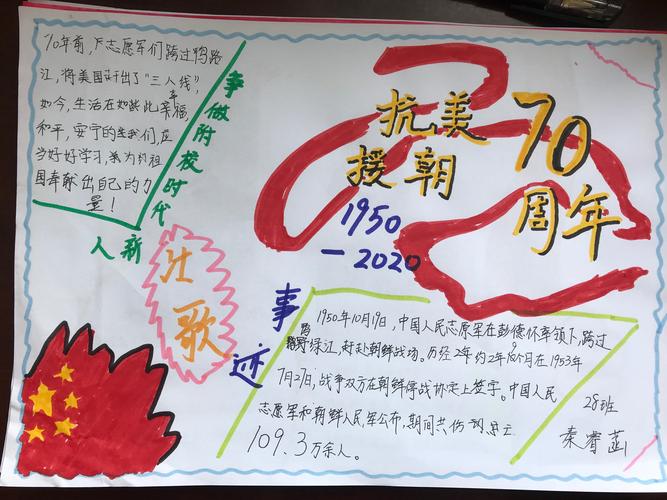 70年前,志愿军们跨过鸭路
江,将美国赶出了"三八线",
如今,生活在如此幸福,
和平,安宁的年我们,应
当好好学习,来为祖
国奉献出自己的力
量!
争做附校时代
新人
壮歌
抗美
援朝
70
周年
1950
—2020
事迹
1950年10月19日,中国人民志愿军在彭德怀率领下,跨过
绿江,赶赴朝鲜战场。历经2年约2年9个月在1953年
7月27日,战争双方在朝鲜停战协定上签字。中国人民
志愿军和朝鲜人民军公布,期间共伤
109.3万余人。
28班
秦